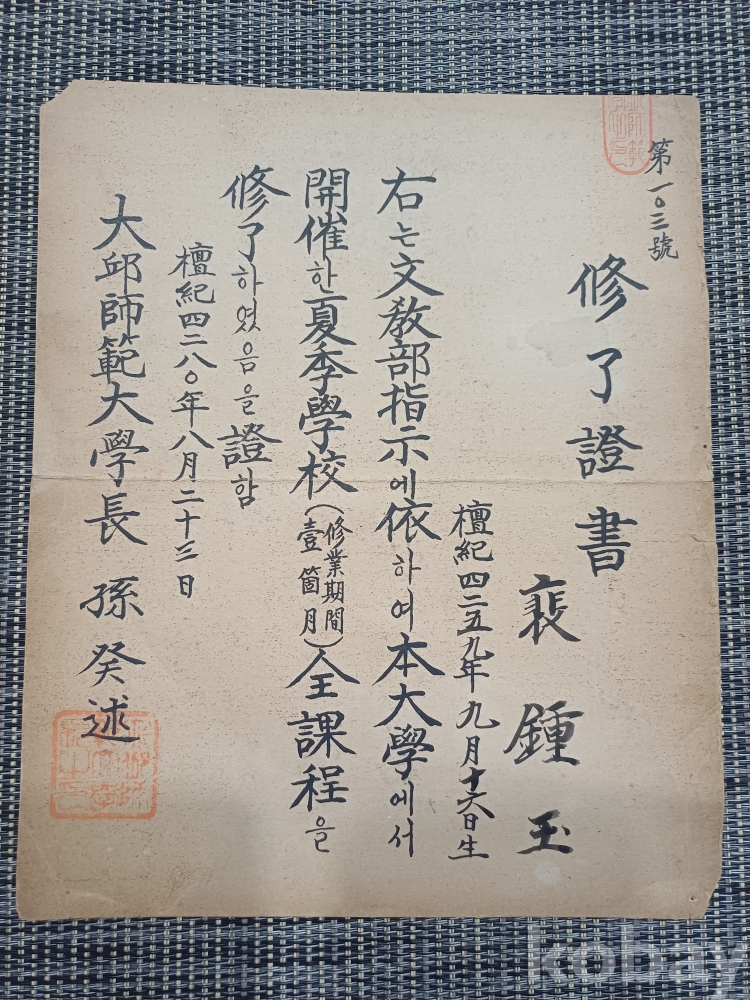 第一〇三號
修了證書
裵鍾玉
檀紀四二五九年九月十六日生
右는文敎部指示에依하여本大學에서
開催한夏季學校(修業期間壹箇月)全課程을
修了하였음을證함
檀紀四二八〇年八月二十三日
大邱師範大學長 孫癸述
kobay